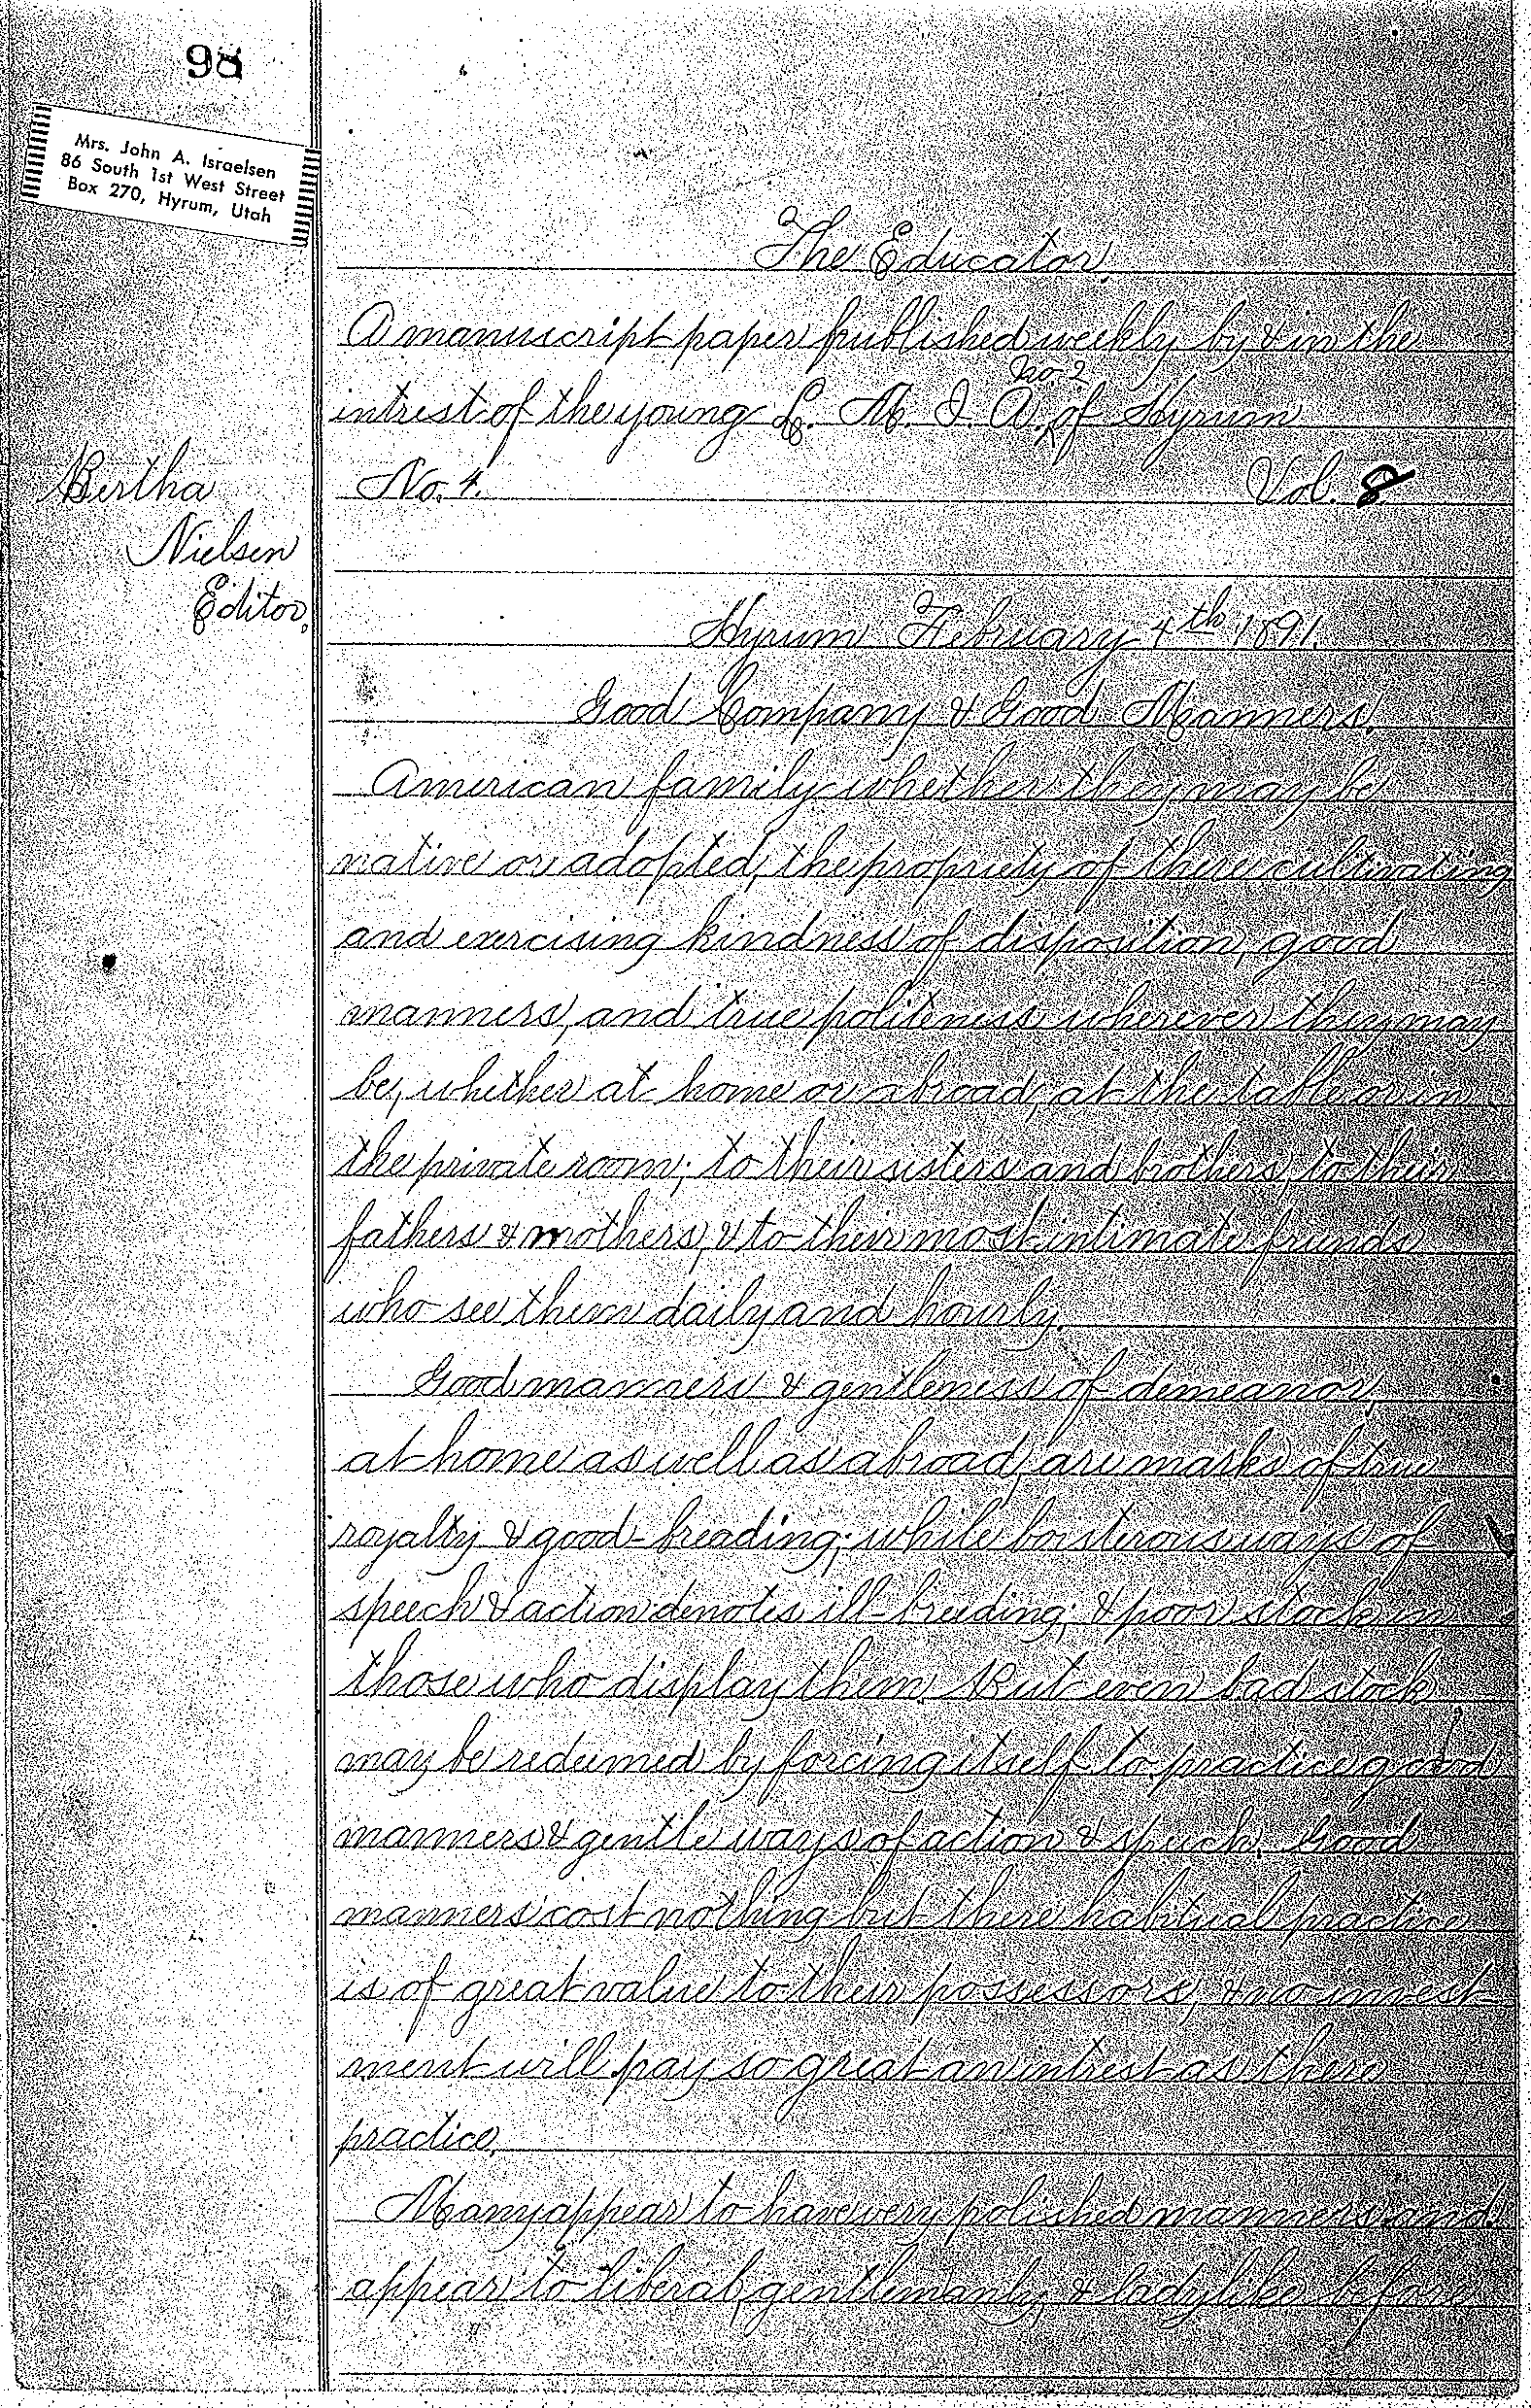 98
Mrs. John A. Israelsen
86 South 1st West Street
Box 270, Hyrum, Utah
The Educator.
A manuscript paper published weekly by & in the
No. 2
intrest of the young L. M. I. A. of Hyrum
Bertha
Nielsen
Editor.
No. 4. Vol. 8
Hyrum February 4th 1891.
Good Company & Good Manners.
American family whether they may be
native or adopted, the propriety of there cultivating
and exercising kindness of disposition, good
manners, and true politeness wherever they may
be, whether at home or abroad, at the table or in
the private room; to their sisters and brothers, to their
fathers & mothers, & to their most intimate friends
who see them daily and hourly.
Good manners & gentleness of demeanor,
at home as well as abroad, are marks of true
royalty & good-breading; while boisterous ways of
speech & action denotes ill-breeding; & poor stock in
those who display them. But even bad stock
may be redeemed by forcing itself to practice good
manners & gentle ways of action & speech. Good
manners cost nothing but there habitual practice
is of great value to their possessors, & no invest
ment will pay so great an intrest as there
practice.
Many appear to have very polished manners and
appear to liberal, gentlemanly, & ladylike before